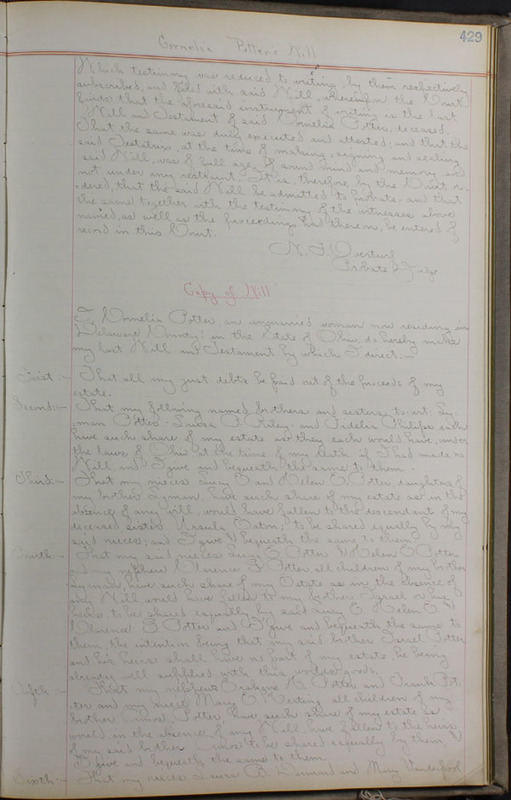 429
Cornelia Potter's Will
Which testimony was reduced to writing, by them respectively
subscribed, and filed with said Will, whereupon the Court
finds that the aforesaid instrument of writing is the last
Will and Testament of said Cornelia Potter, deceased.
That the same was duly executed and attested, and that the
said Testatrix, at the time of making, signing and sealing
said Will, was of full age, of sound mind and memory, and
not under any restraint. It is, therefore by the Court or-
dered, that the said Will be admitted to probate and that
the same together with the testimony of the witnesses above
named, as well as the proceedings had thereon, be entered of
record in this Court.
Probate Judge
Copy of Will
I, Cornelia Potter, an unmarried woman now residing in
Delaware County, in the State of Ohio, do hereby make
my last Will and Testament by which I direct.
First:- That all my just debts be paid out of the proceeds of my
estate.
Second:- That my following named brothers and sisters, to wit: Ly-
man Potter, Riley and Fidelia Philips each
have such share of my estate as they each would have, under
the laws of Ohio at the time of my death if I had made no
Will, and I give and bequeath the same to them.
Third:- That my nieces Lucy E and Helen O Potter, daughters of
my brother Lyman, have such share of my estate as in the
absence of any will, would have fallen to the descendant of my
deceased sister Ursula Eaton, to be shared equally by my
said nieces, and I give & bequeath the same to them.
Fourth:- That my said nieces Lucy E Potter & Helen O Potter
and my nephew Clarence B Potter, all children of my brother
Lyman, have such share of my Estate as in the absence of
any Will would have fallen to my brother Israel or his
heirs, to be shared equally by said Lucy E. Helen O &
Clarence B Potter and I give and bequeath the same to
them, the intention being that my said brother Israel Potter
and his heirs shall have no part of my estate, he being
already well supplied with this worlds goods.
Fifth:- That my nephews Potter and Frank Pot-
ter and my niece Mary all children of my
brother Potter, have such share of my estate as
would, in the absence of any Will, have fallen to the heirs
of my said brother to be shared equally by them &
I give and bequeath the same to them.
Sixth:- That my nieces Laura B. and Mary